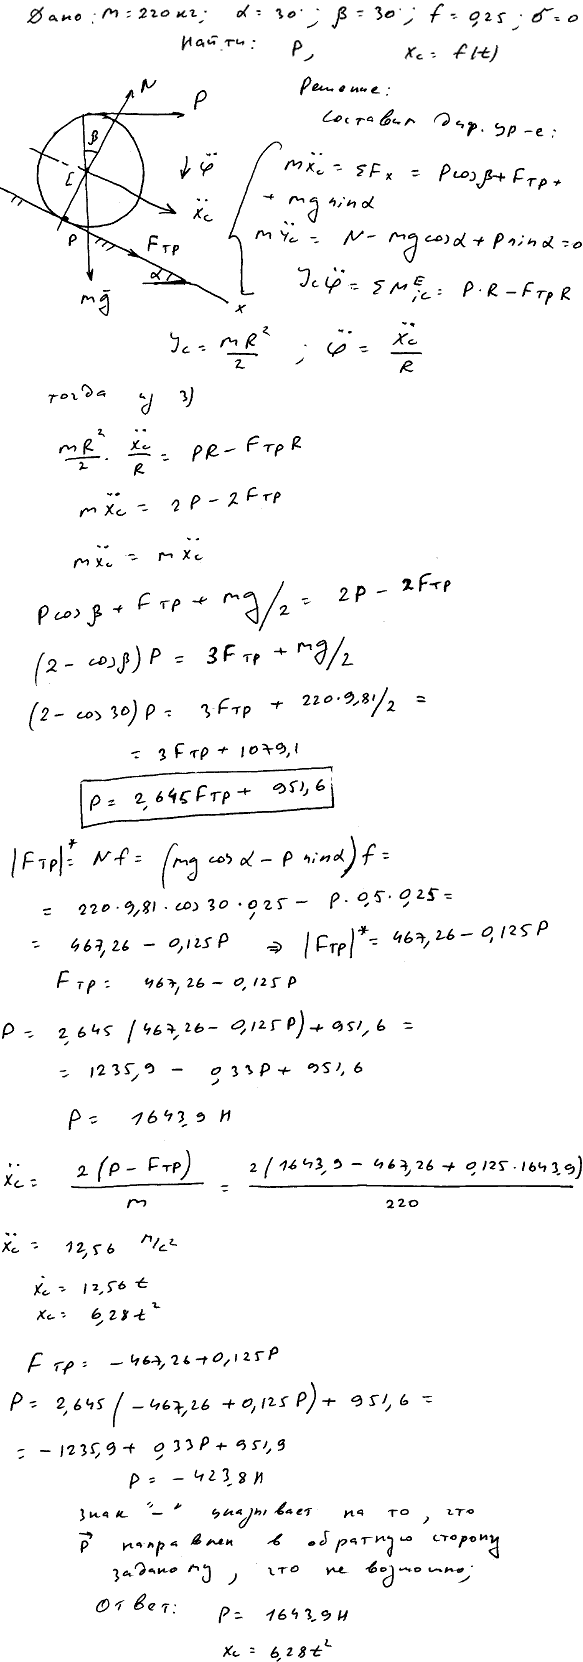 Дано: m = 220 кг; α = 30°; β = 30°; f = 0,25; δ = 0
Найти: P, xc = f(t)
Решение:
Составим диф. ур-е:
N
P
β
φ̈
C
ẍc
P
Fтр
α
mḡ
x
mẍc = ΣFx = Pcosβ + Fтр +
+ mg sinα
mÿc = N - mg cosα + P sinα = 0
Jcφ̈ = ΣMᴱic = P·R - Fтр R
Jc = mR²/2 ; φ̈ = ẍc/R
тогда из 3)
mR²/2 · ẍc/R = PR - Fтр R
mẍc = 2P - 2Fтр
mẍc = mẍc
Pcosβ + Fтр + mg/2 = 2P - 2Fтр
(2 - cosβ)P = 3Fтр + mg/2
(2 - cos 30)P = 3Fтр + 220·9,81/2 =
= 3Fтр + 1079,1
P = 2,645Fтр + 951,6
|Fтр|* = Nf = (mg cosα - P sinα)f =
= 220·9,81·cos30·0,25 - P·0,5·0,25 =
= 467,26 - 0,125P ⇒ |Fтр|* = 467,26 - 0,125P
Fтр = 467,26 - 0,125P
P = 2,645(467,26 - 0,125P) + 951,6 =
= 1235,9 - 0,33P + 951,6
P = 1643,9 Н
ẍc = 2(P - Fтр)/m = 2(1643,9 - 467,26 + 0,125·1643,9)/220
ẍc = 12,56 м/с²
ẋc = 12,56t
xc = 6,28t²
Fтр = -467,26 + 0,125P
P = 2,645(-467,26 + 0,125P) + 951,6 =
= -1235,9 + 0,33P + 951,9
P = -423,8 Н
знак "-" указывает на то, что
P⃗ направлен в обратную сторону
заданому, что не возможно;
Ответ: P = 1643,9 Н
xc = 6,28t²